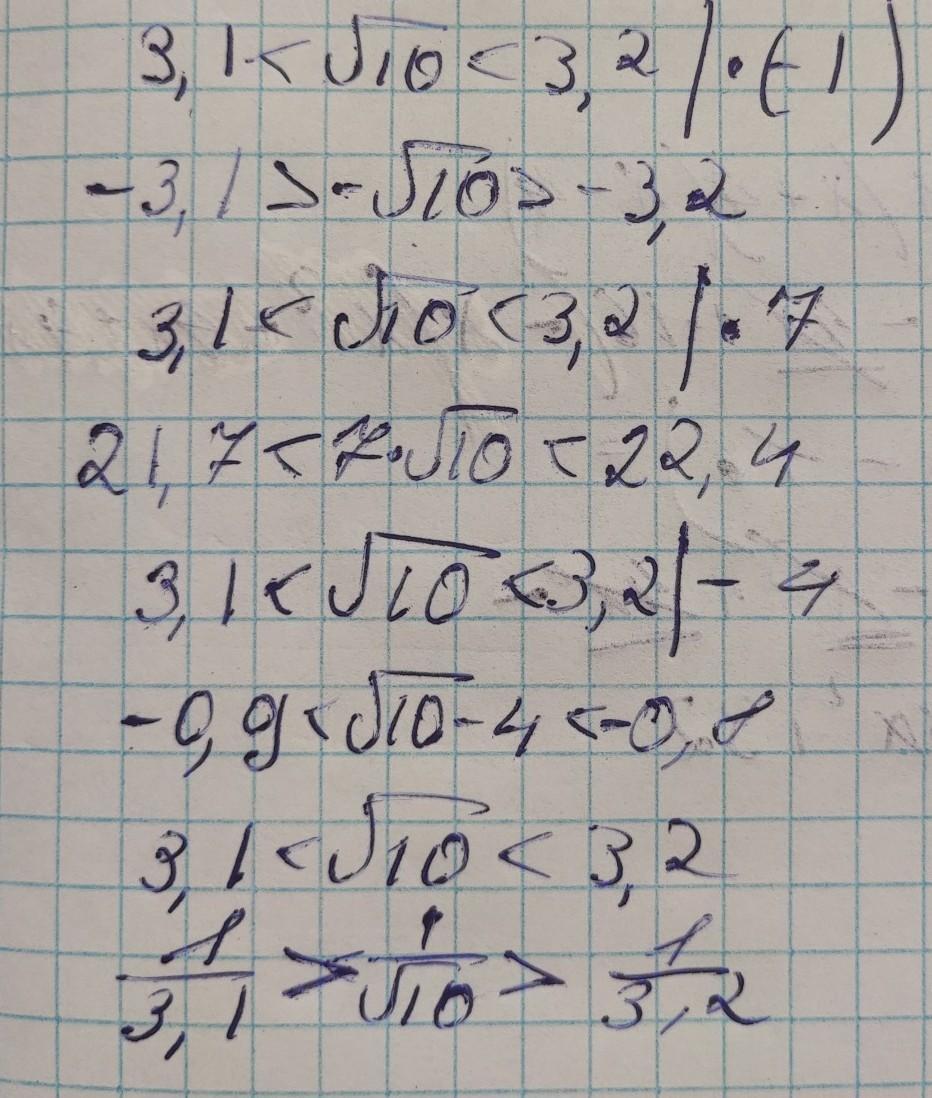 3,1 < √10 < 3,2 | · (-1)
-3,1 > -√10 > -3,2
3,1 < √10 < 3,2 | · 7
21,7 < 7·√10 < 22,4
3,1 < √10 < 3,2 | - 4
-0,9 < √10 - 4 < -0,8
3,1 < √10 < 3,2
1/3,1 > 1/√10 > 1/3,2